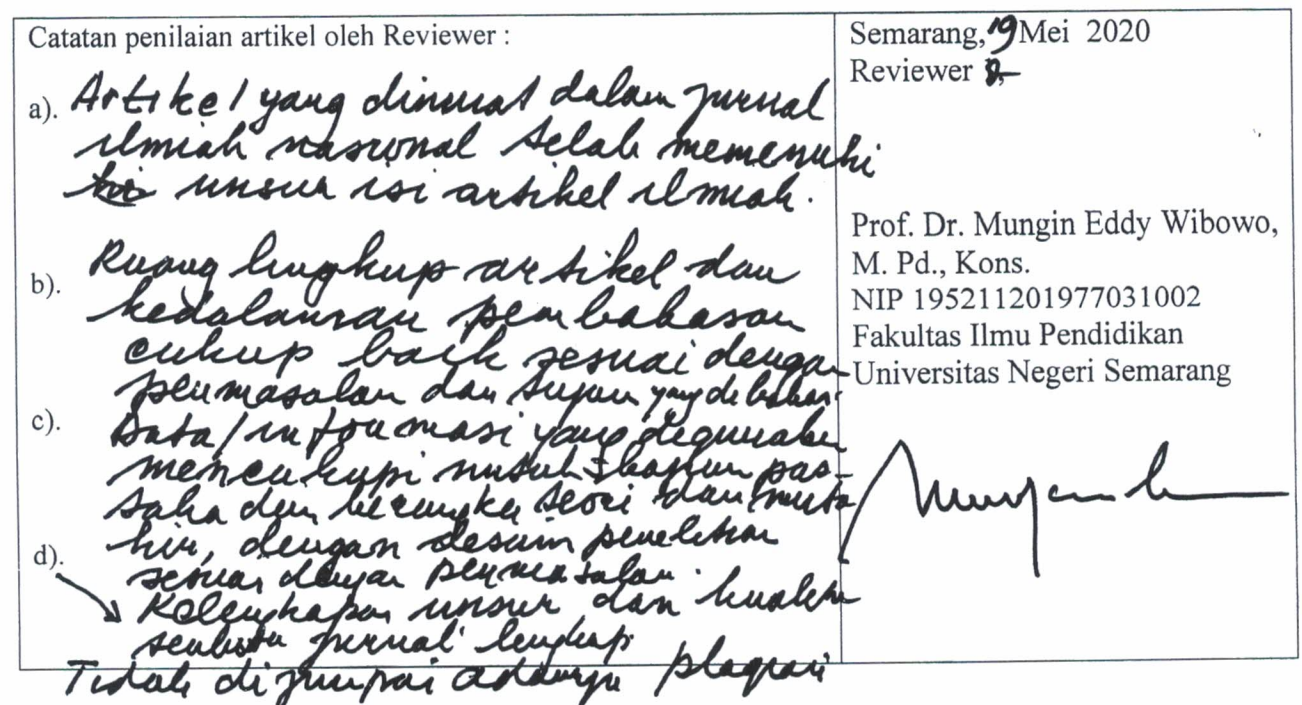 Catatan penilaian artikel oleh Reviewer :
a). Artikel yang dimuat dalam jurnal
ilmiah nasional telah memenuhi
unsur isi artikel ilmiah.
b). Ruang lingkup artikel dan
kedalaman pembahasan
cukup baik sesuai dengan
permasalan dan tujuan yang dibahas
c). Data/informasi yang digunakan
mencukupi untuk
dan teori dan muta
hir, dengan desain penelitian
sesuai dengan permasalan.
d). Kelengkapan unsur dan kualitas
jurnal lengkap
Tidak dijumpai adanya plagiasi
Semarang, 19 Mei 2020
Reviewer
Prof. Dr. Mungin Eddy Wibowo,
M. Pd., Kons.
NIP 195211201977031002
Fakultas Ilmu Pendidikan
Universitas Negeri Semarang